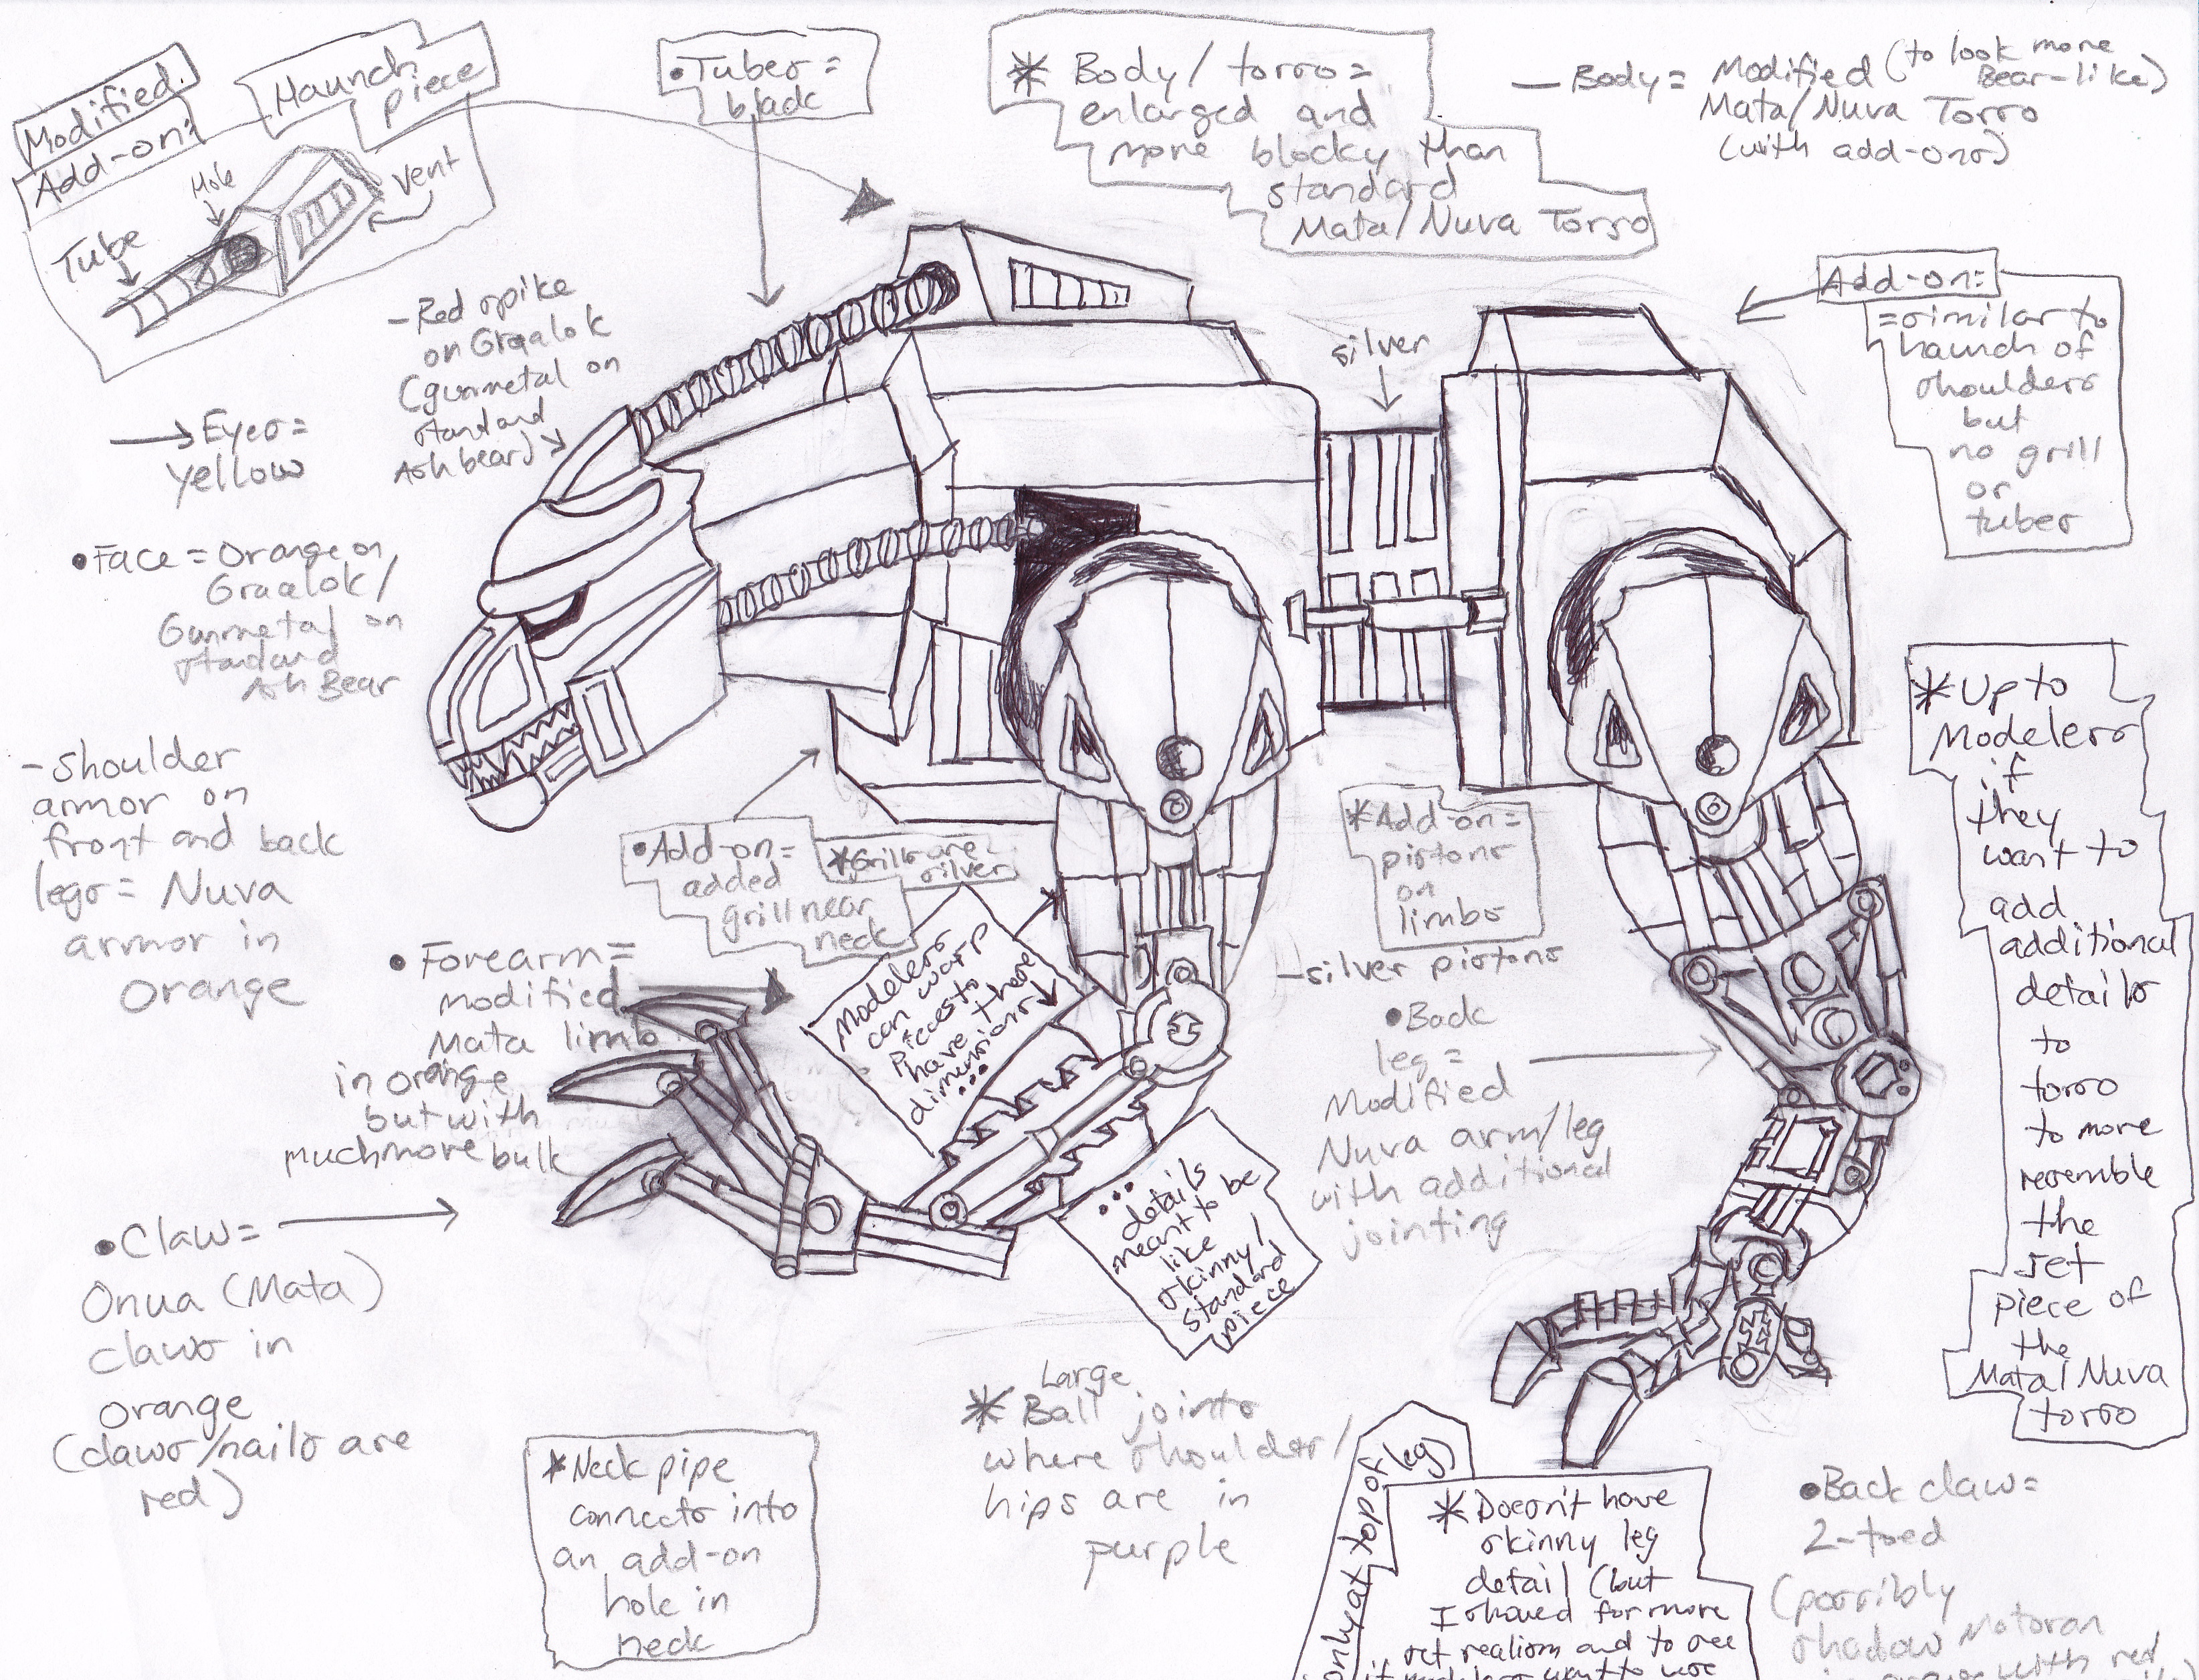 Modified
Add-on:
Haunch
piece
Hole
Vent
Tube
• Tubes =
black
* Body/torso =
enlarged and
more blocky than
standard
Mata/Nuva Torso
— Body = Modified (to look more
Bear-like)
Mata/Nuva Torso
(with add-ons)
- Red spike
on Graalok
(gunmetal on
standard
Ash bear)
Eyes =
yellow
• Face = Orange on
Graalok/
Gunmetal on
standard
Ash Bear
- Shoulder
armor on
front and back
legs = Nuva
armor in
orange
silver
Add-on:
= similar to
haunch of
shoulders
but
no grill
or
tubes
* Up to
Modelers
if
they
want to
add
additional
details
to
torso
to more
resemble
the
set
piece of
the
Mata/Nuva
torso
• Add-on =
added
grill near
neck
* Grills are
silver
* Add-on =
pistons
on
limbs
- silver pistons
• Forearm =
modified
Mata limb
in orange
but with
much more bulk
Modelers
can warp
pieces to
have these
dimensions
...
...
details
meant to be
like
skinny/
standard
piece
• Back
leg =
Modified
Nuva arm/leg
with additional
jointing
• Claw =
Onua (Mata)
claws in
orange
(claws/nails are
red)
* Neck pipe
connects into
an add-on
hole in
neck
* Large
Ball joints
where shoulder/
hips are in
purple
only at top of leg)
* Doesn't have
skinny leg
detail (but
I showed for more
set realism and to see
if modelers want to use
• Back claw =
2-toed
(possibly
shadow Matoran
with red